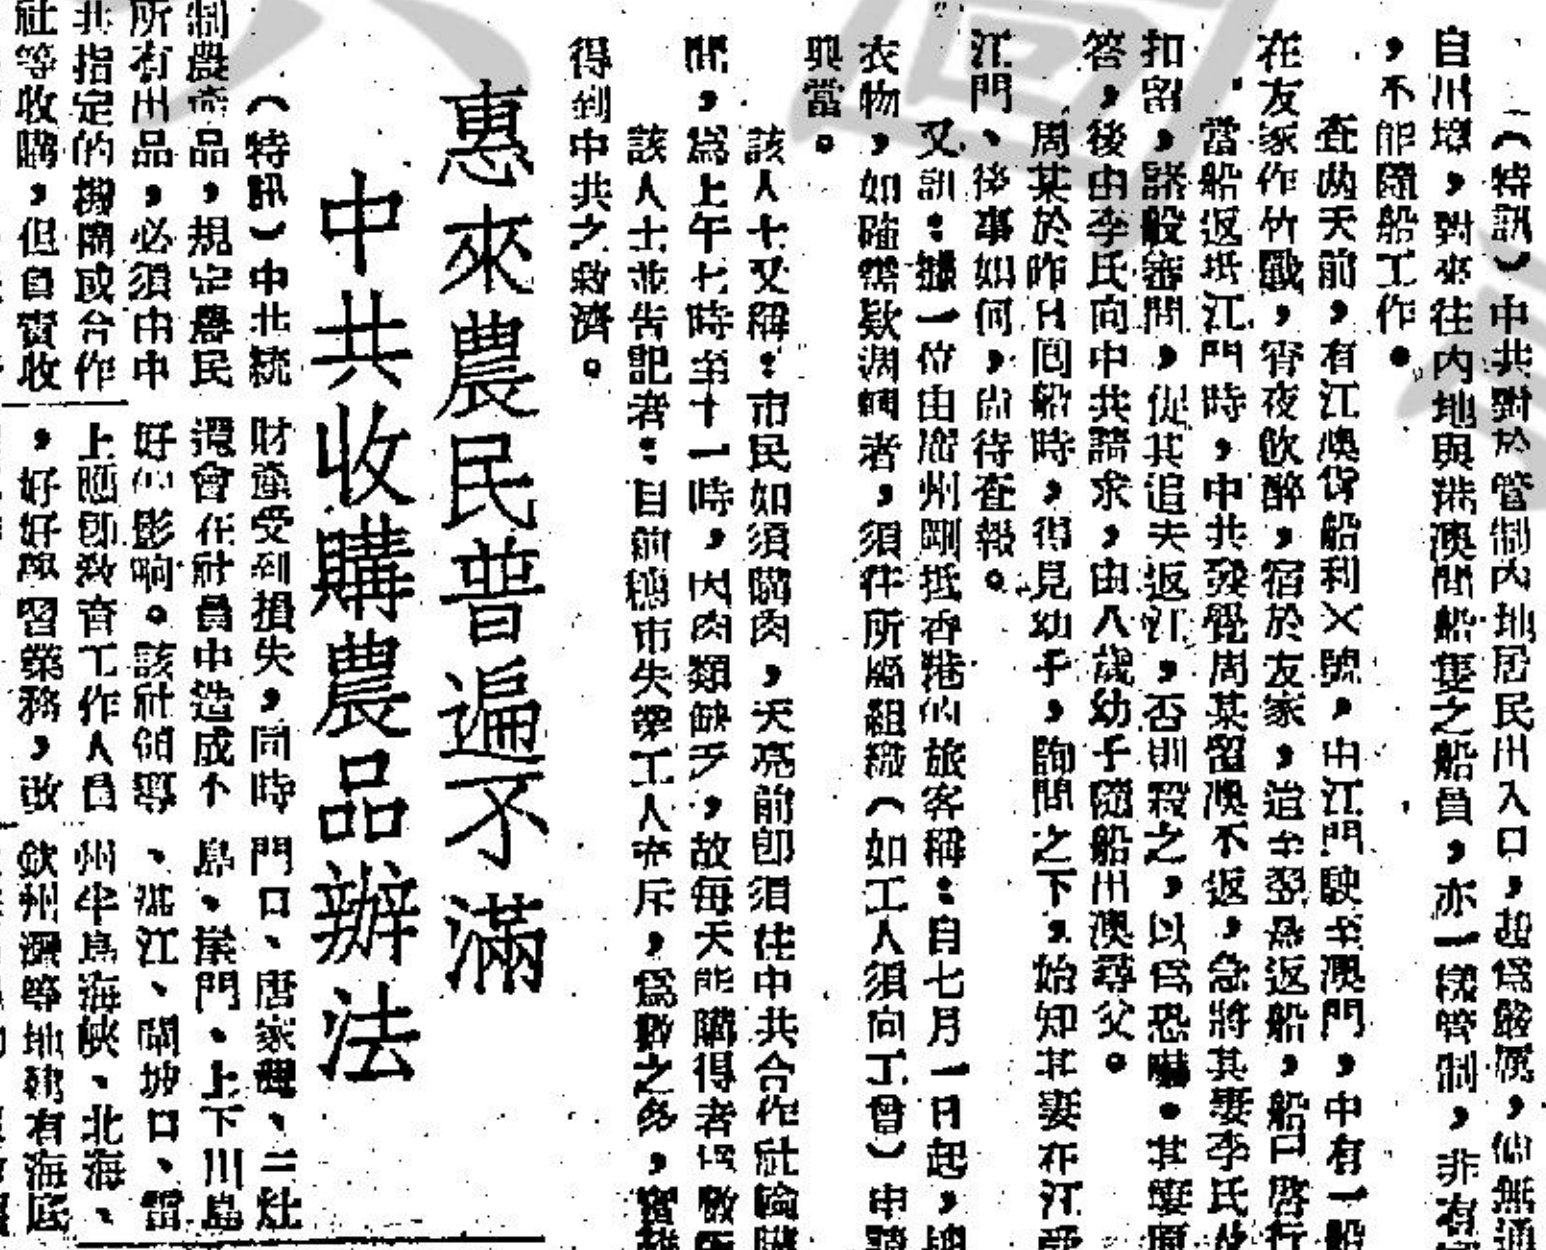 （特訊）中共對於管制內地居民出入口，趨爲嚴厲，倘無通
自出境，對來往內地與港澳間船隻之船員，亦一樣管制，非有
，不能隨船工作。
查兩天前，有江澳貨船利×號，由江門駛至澳門，中有一船
在友家作竹戰，宵夜飲醉，宿於友家，迨至翌晨返船，船已啓行
當船返抵江門時，中共發覺周某留澳不返，急將其妻李氏
扣留，諸般審問，促其追夫返江，否則殺之，以爲恐嚇。其妻
答，後由李氏向中共請求，由八歲幼子隨船出澳尋父。
周某於昨日囘船時，得見幼子，詢問之下，始知其妻在江受
江門、後事如何，尚待查報。
又訊：據一位由廣州剛抵香港的旅客稱：自七月一日起，
衣物，如確需欵週轉者，須往所屬組織（如工人須向工會）申請
典當。
該人士又稱：市民如須購肉，天亮前卽須往中共合作社輪購
間，爲上午七時至十一時，因肉類缺乏，故每天能購得者
該人士並告記者：目前穗市失業工人充斥，爲數之多，
得到中共之救濟。
惠來農民普遍不滿
中共收購農品辦法
（特訊）中共統
制農產品，規定農民
所有出品，必須由中
共指定的機關或合作
社等收購，但負責收
財產受到損失，同時
還會在社員中造成不
好的影响。該社領導
上應卽敎育工作人員
，好好學習業務，改
門口、唐家灣、三灶
島、崖門、上下川島
、湛江、閘坡口、雷
州半島海峽、北海、
欽州灣等地建有海底